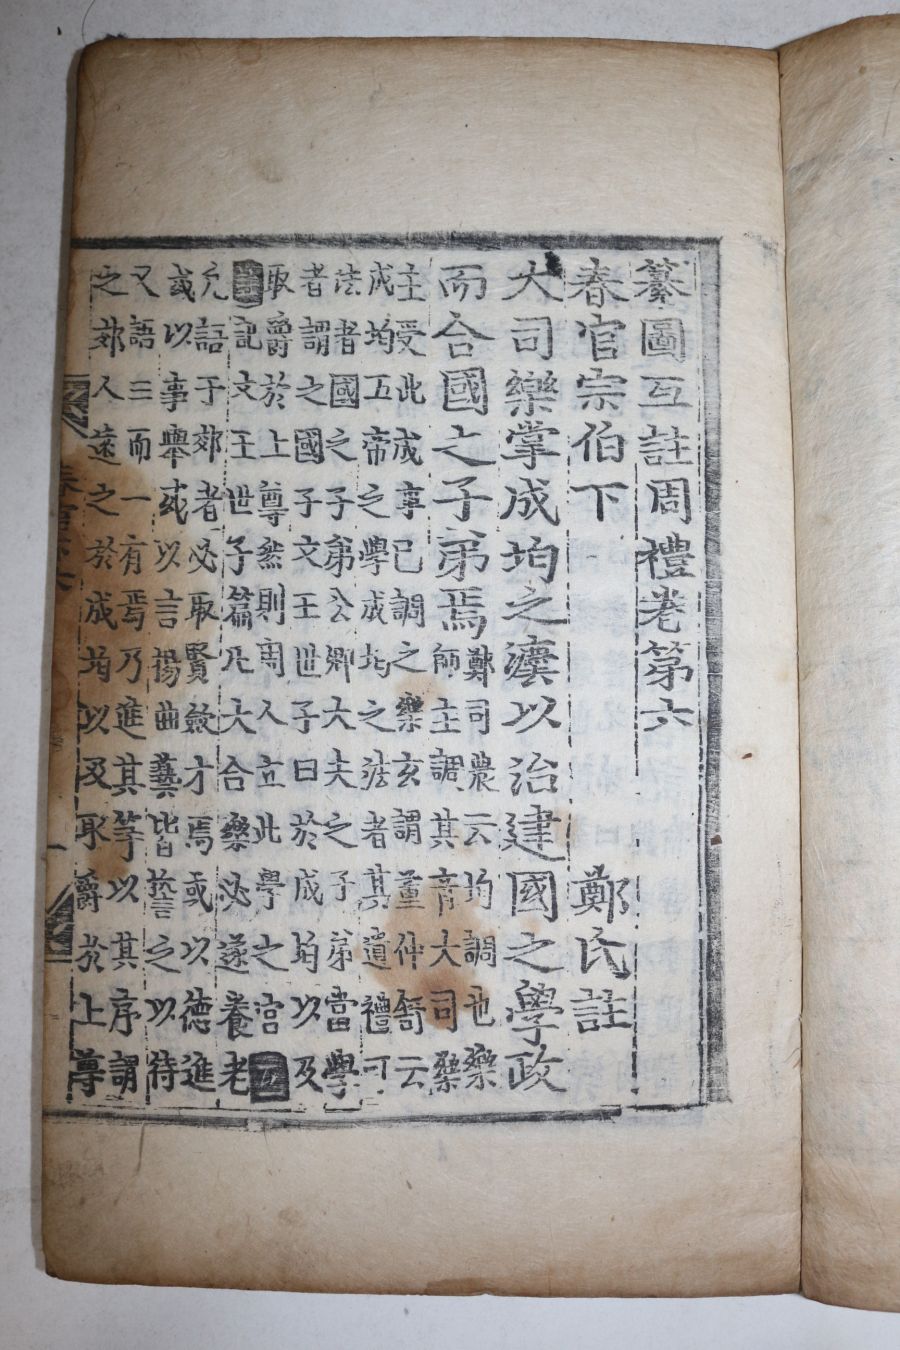 纂圖互註周禮卷第六
春官宗伯下 鄭氏註
大司樂掌成均之灋以治建國之學政
而合國之子弟焉
鄭司農云均調也樂
師主調其音大司樂
主受此成事已調之樂玄謂董仲舒云
成均五帝之學成均之法者其遺禮可
法者國之子弟公卿大夫之子弟當學
者謂之國子文王世子曰於成均以及
取爵於上尊然則周人立此學之宮
記文王世子篇凡大合樂必遂養老
凡語于郊者必取賢斂才焉或以德進
或以事舉或以言揚曲藝皆誓之以待
又語三而一有焉乃進其等以其序謂
之郊人遠之於成均以及取爵於上尊